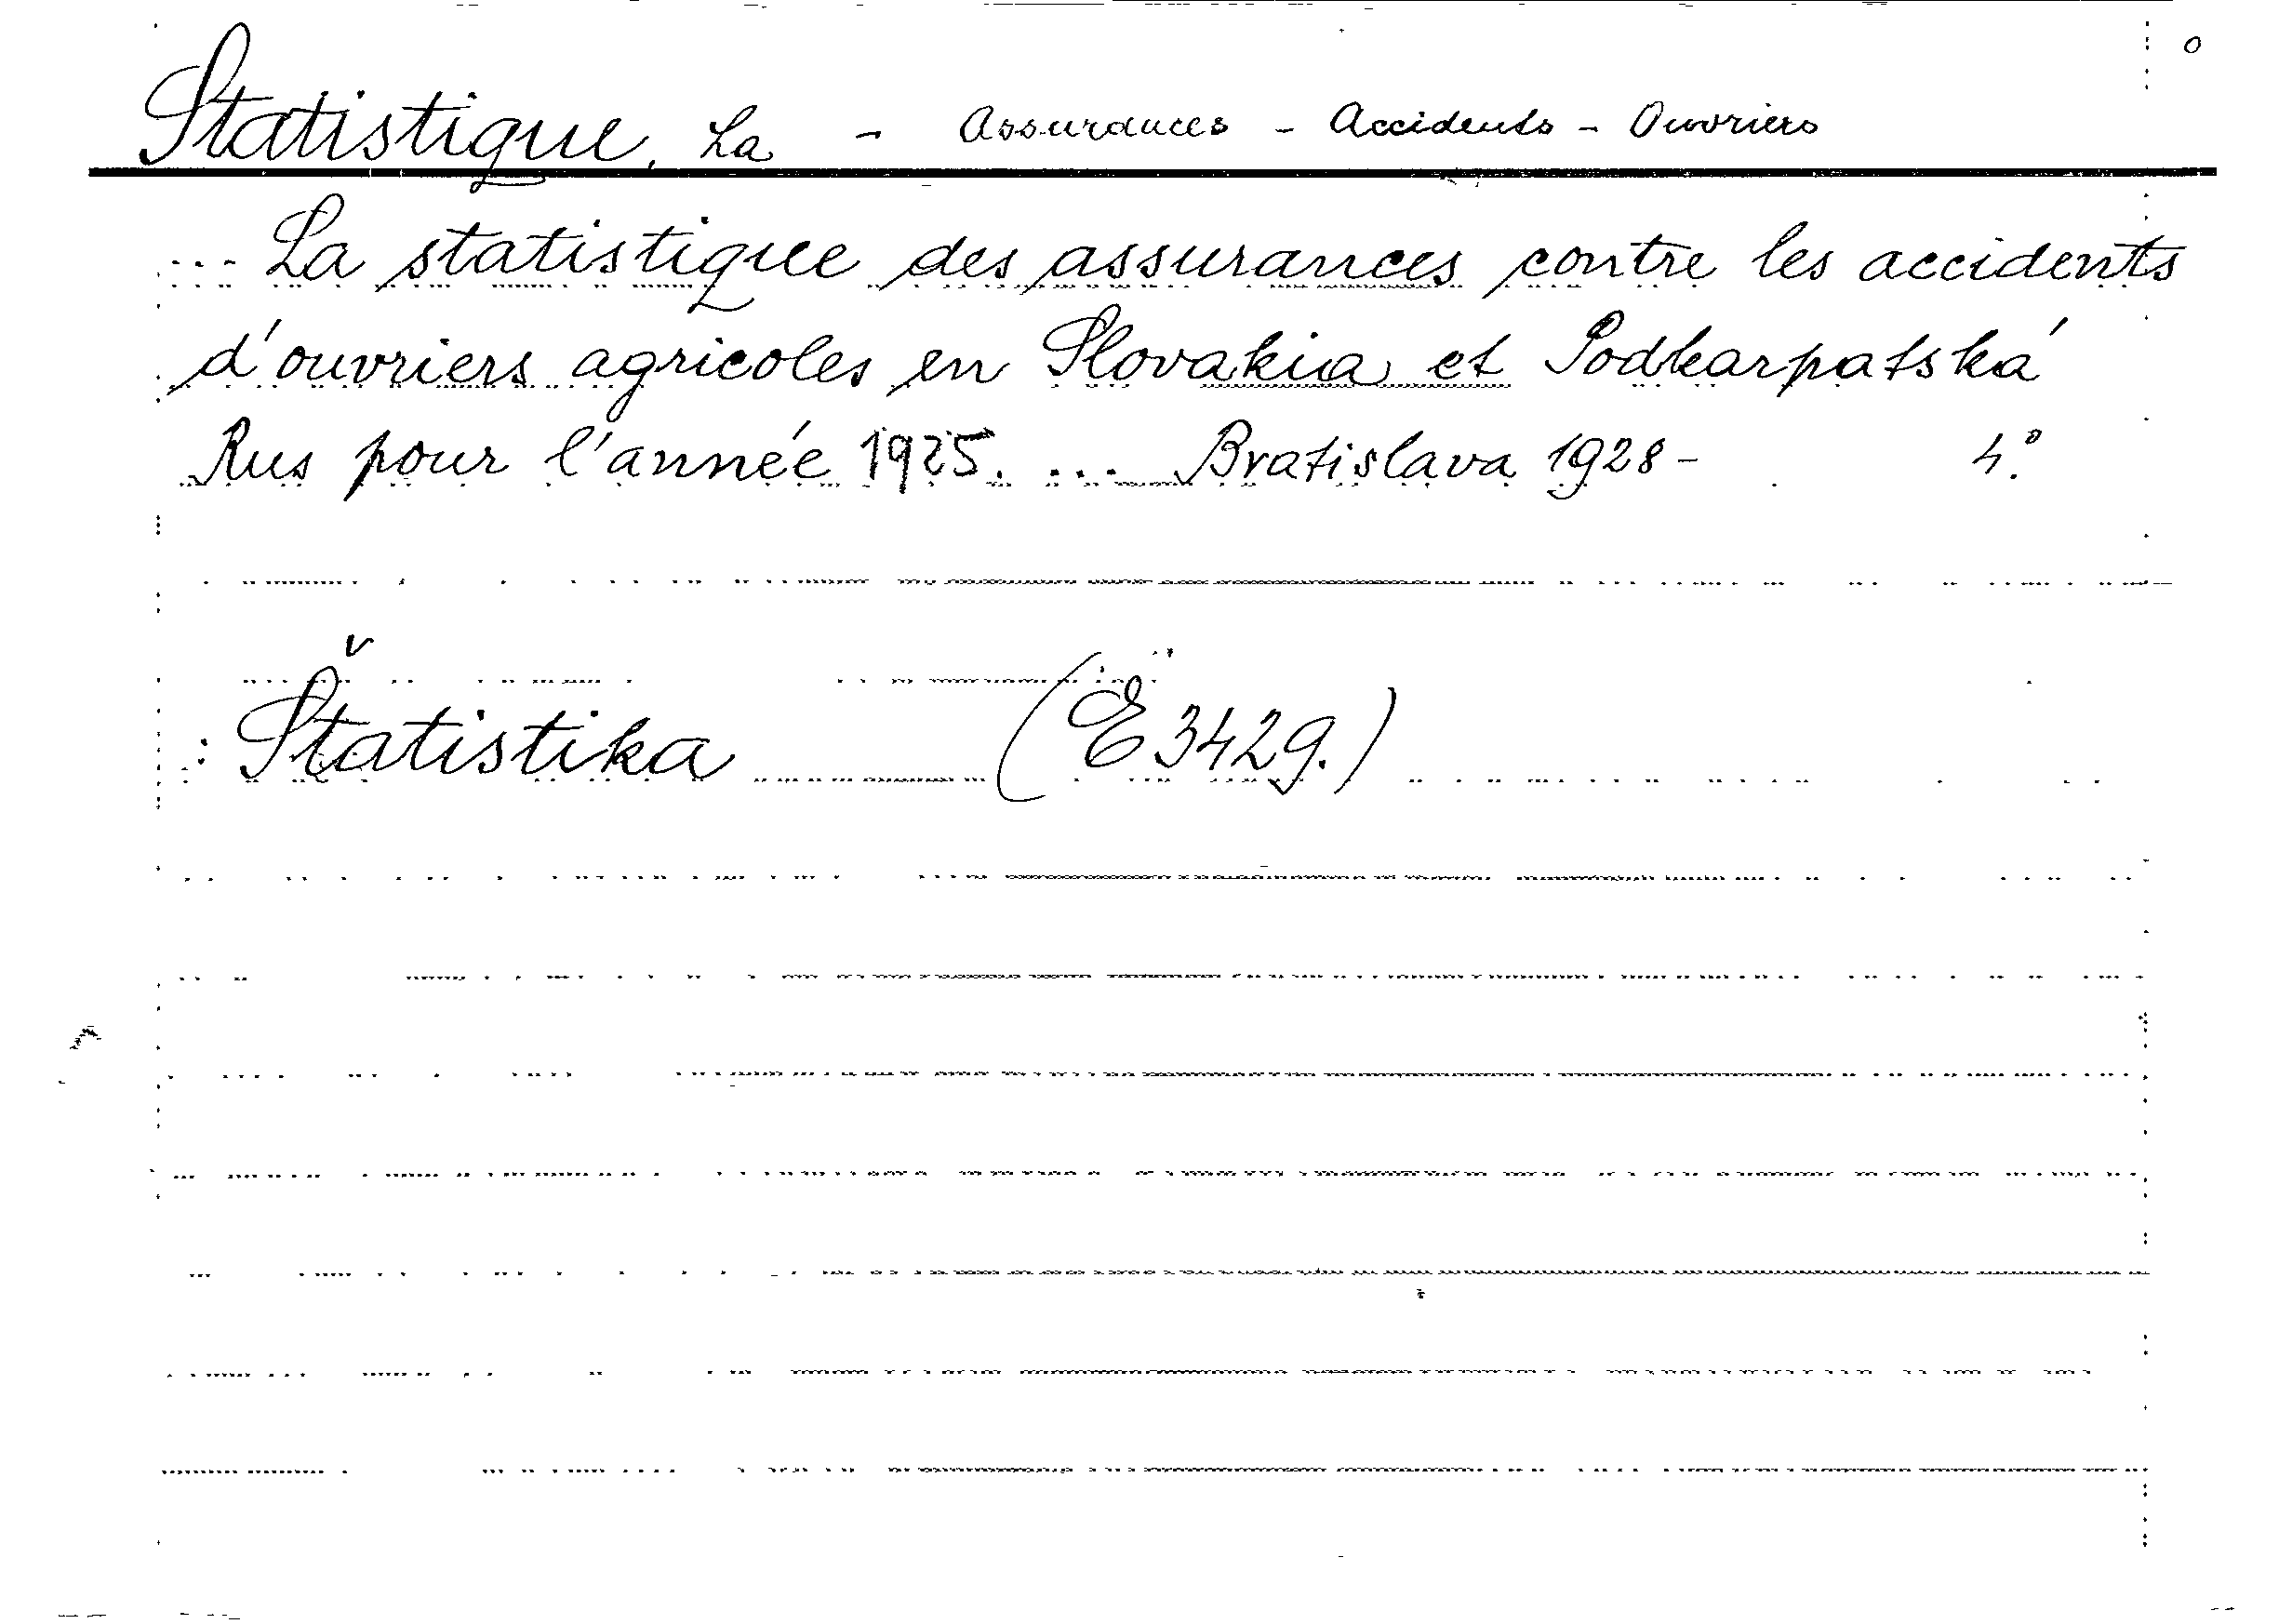 o
Statistique, La - Assurances - Accidents - Ouvriers
... La statistique des assurances contre les accidents
d'ouvriers agricoles en Slovakia et Podkarpatská
Rus pour l'année 1925. ... Bratislava 1928 - 4.°
: Štatistika (E 3429.)